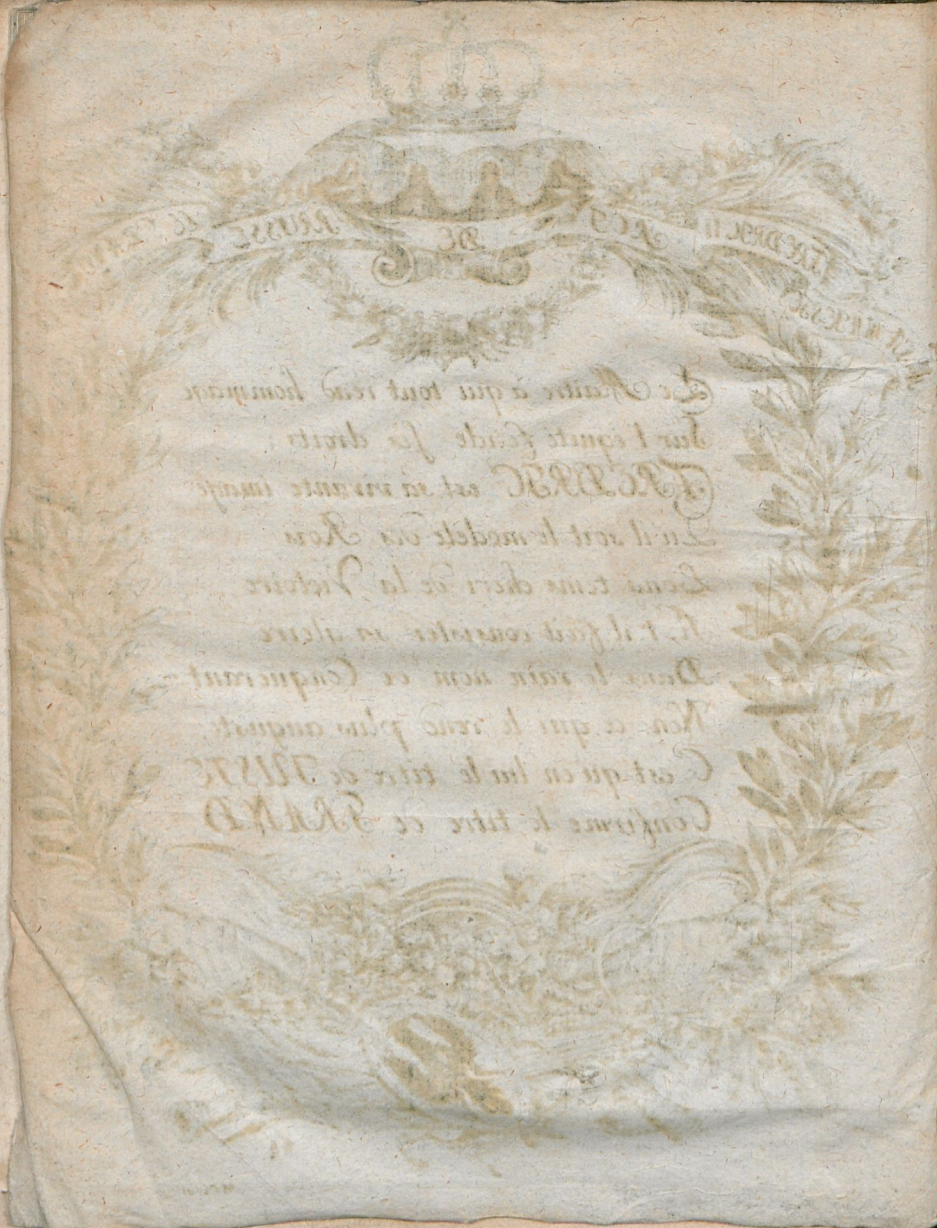 FREDRIC II ROI DE PRUSSE
Le Maitre à qui tout rend hommage
Sur l'équité fonde ses droits :
FREDRIC est sa vivante image
Qu'il soit le modèle des Rois
Lons tems cheri de la Victoire
fait consister sa gloire
Dans le vain nom de Conquerant
Non ce qui le rend plus auguste,
C'est qu'en lui le titre de JUSTE
Confirme le titre de GRAND